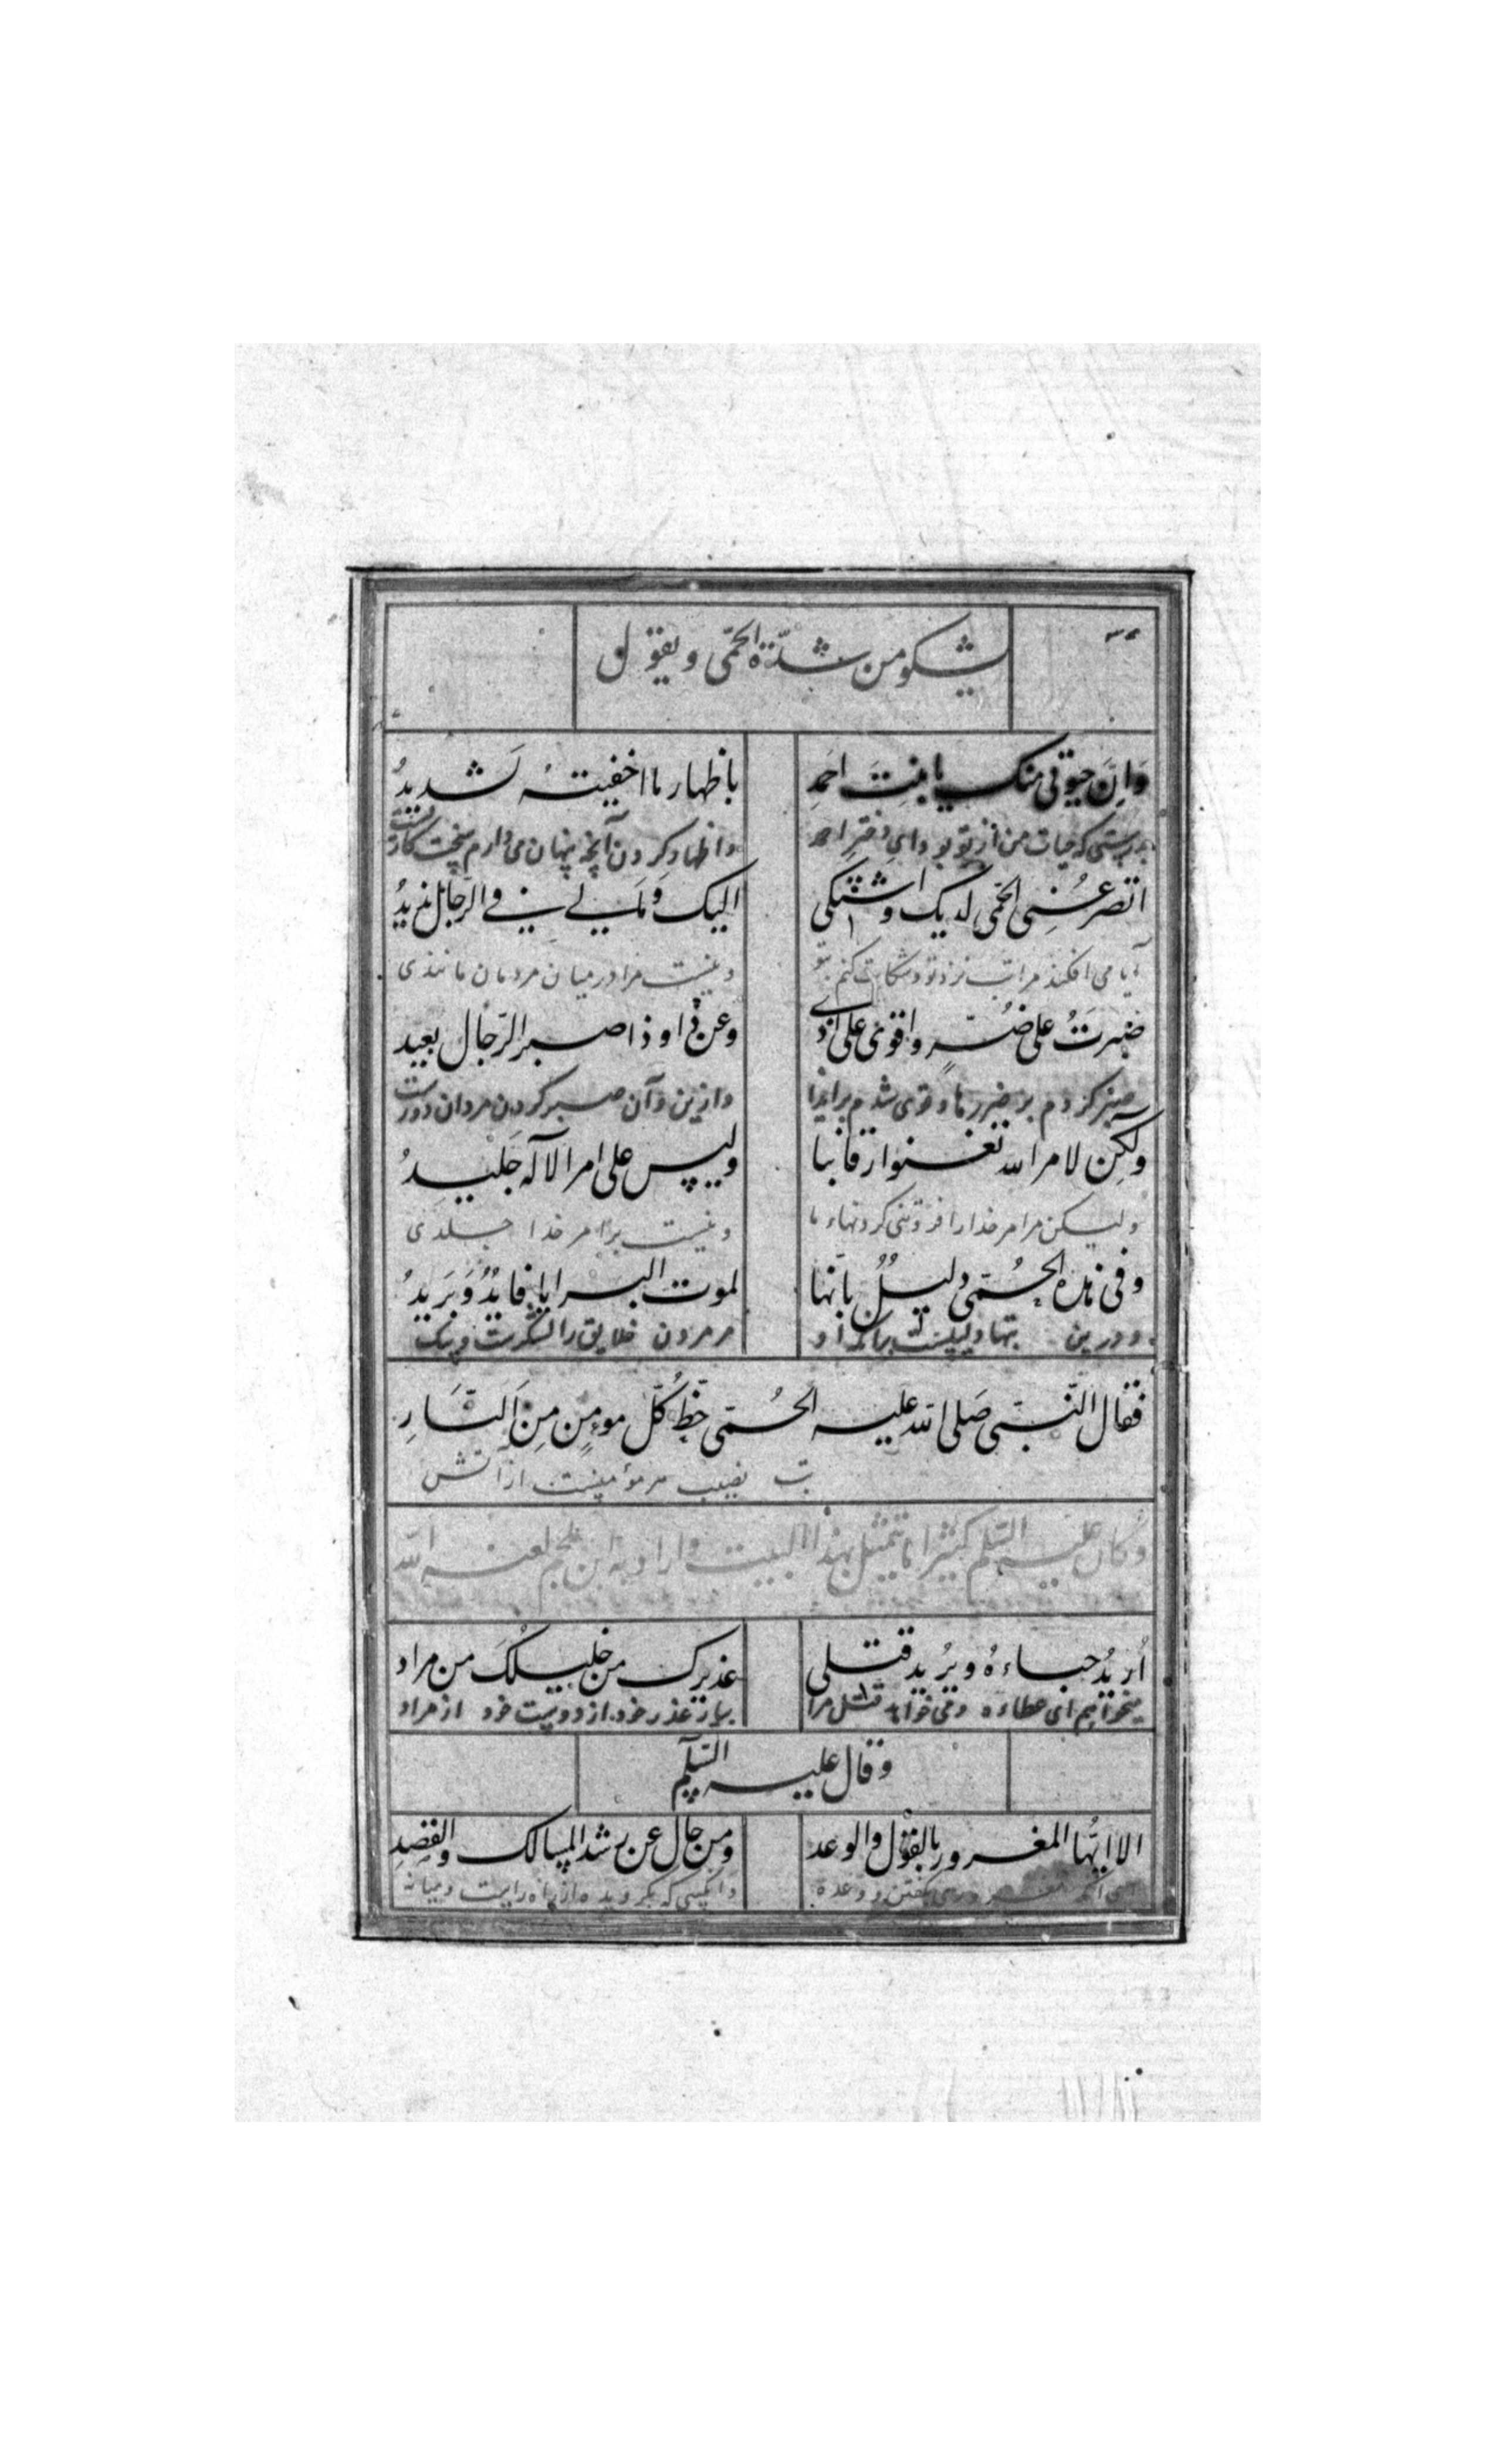 يشكو من شدّة الحمّى ويقول
وَاِنَّ حيوتی منک یا بنِتَ احمَدِ
باظهار ما اخفیتهُ لَشدیدُ
بدرستی که حیات من از تو بود ای دختر احمد
واظهار کردن آنچه پنهان می دارم سخت کارست
اتصرعُنی الحمّی لدیک واشتکی
الیک وَمَا لی فی الرّجال ندیدُ
آیا می افکند مرا تب نزد تو و شکایت کنم بتو
و نیست مرا در میان مردمان مانندی
صَبرتُ علی ضُرٍّ واقوی علی اذی
وعن ذی او ذا صبر الرّجال بعید
صبر کردم بر ضررها و قوی شدم بر ایذا
و از این و آن صبر کردن مردان دورست
ولکِن لامر الله تعنوا رقابنا
ولیس علی امر الاله جَلیدُ
ولیکن مر امر خدا را فروتنی کرد
و نیست بر امر خدا جلدی
وفی هذه الحُمّی دلیلٌ بانّها
لموت البرایا قایدٌ وَبَریدُ
و درین تبها دلیلیست
مر مردن خلایق را لشکرست و پیک
فقال النّبیّ صَلی الله علیه الحُمّی حَظّ کُلّ مومنٍ مِنَ النّارِ
تب نصیب هر مؤمنیست از آتش
وکان علیه السّلم کثیرا ما یتمثّل بهذا البیت واراد به ابن ملجم لعنه الله
اُریدُ حباءهُ ویُرید قتلی
عذیرک من خلیلکَ من مراد
میخواهیم ای عطاءه و می خواهد قتل مرا
بیار عذر خود از دوست خود از مراد
وقال علیه السّلم
الا ایّها المغرور بالقول والوعد
ومن حال عن رشد المسالک والقصدِ
گفتن و وعده
وانکسی که بگردیده از راه راست و میانه